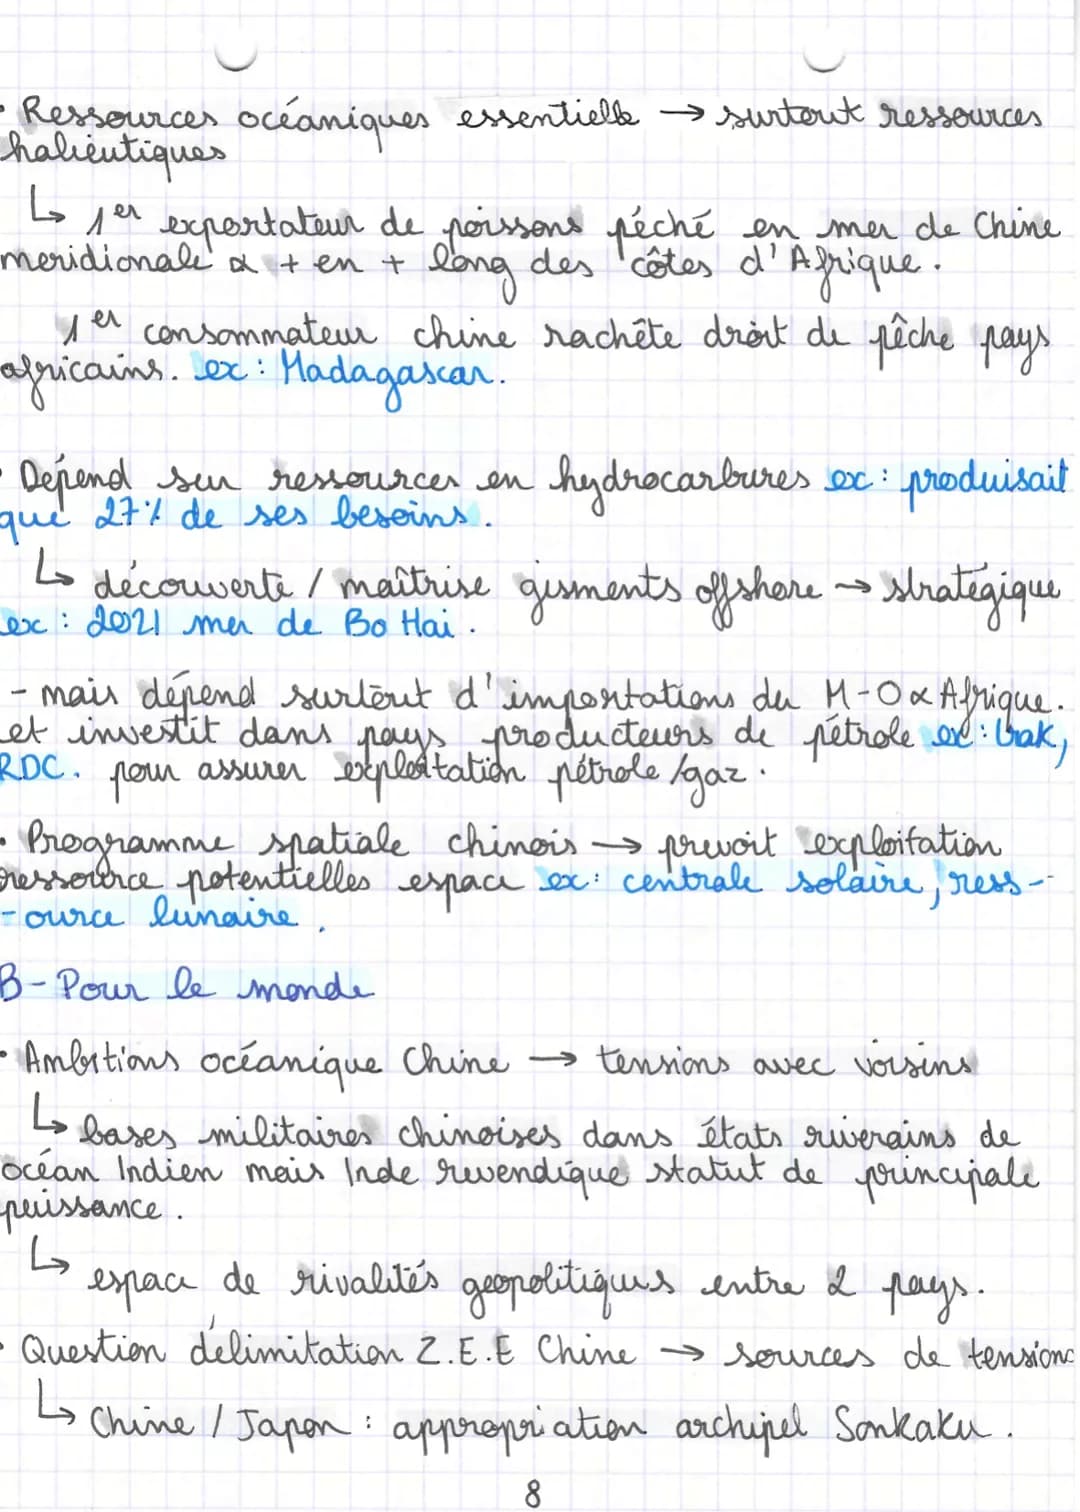 • Ressources océaniques essentielle → surtout ressources
halieutiques
↳ 1er exportateur de poissons péché en mer de Chine
meridionale & + en + long des côtes d'Afrique.
1er consommateur chine rachête droit de pêche pays
africains. ex : Madagascar.
• Dépend sur ressources en hydrocarbures ex : produisait
que 27% de ses besoins.
↳ découverte / maîtrise gisments offshore → stratégique
ex : 2021 mer de Bo Hai.
- mais dépend surtout d'importations du M-O & Afrique.
et investit dans pays producteurs de pétrole ex : Irak,
RDC. pour assurer exploitation pétrole/gaz.
• Programme spatiale chinois → prevoit exploitation
ressource potentielles espace ex : centrale solaire, ress-
-ource lunaire.
B- Pour le monde
• Ambitions océanique Chine → tensions avec voisins
↳ bases militaires chinoises dans états riverains de
océan Indien mais Inde revendique statut de principale
puissance.
↳ espace de rivalités geopolitiques entre 2 pays.
• Question délimitation Z.E.E Chine → sources de tensions
↳ Chine / Japon : appropriation archipel Sonkaku.
8